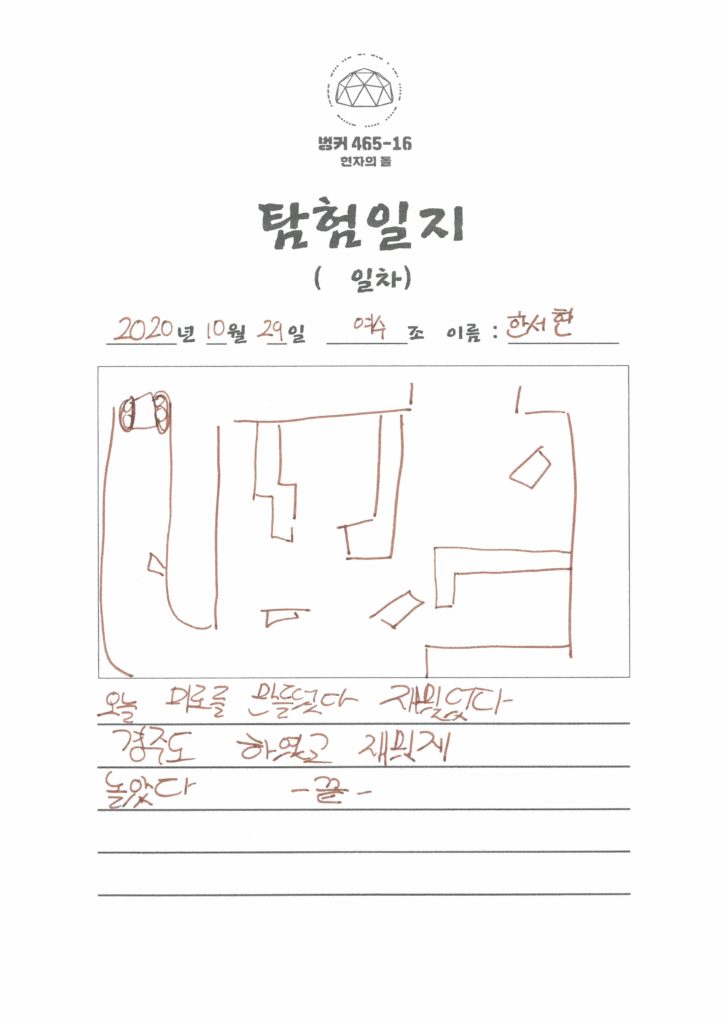 벙커 465-16
현자의 돌
탐험일지
( 일차)
2020년 10월 29일 여수 조 이름 : 한서현
오늘 미로를 만들었다 재밌있다
경주도 하였고 재믺게
놀았다 -끝-